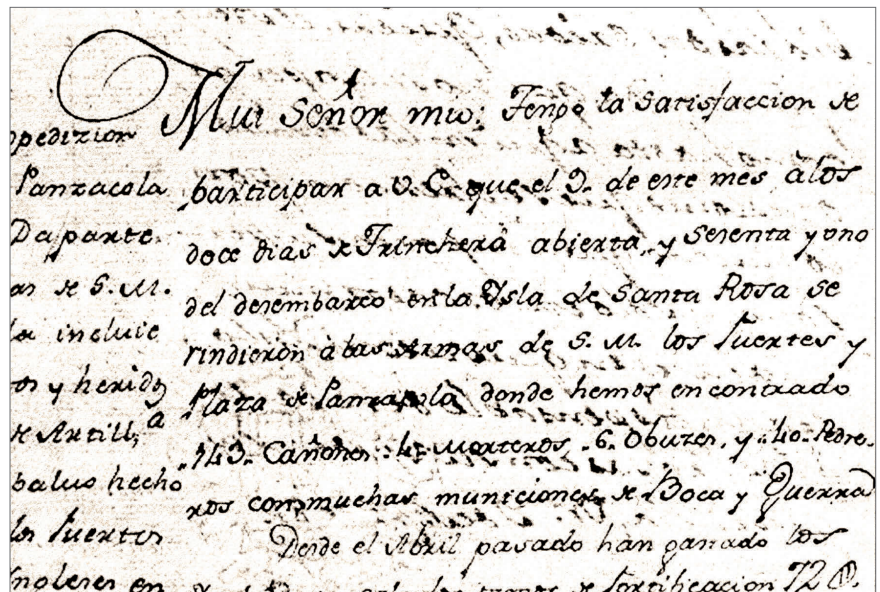 Mui Señor mio: Tengo la Satisfaccion de
participar a V. E. que el 9. de este mes alos
doce dias de Trinchera abierta, y Sesenta y uno
del desembarco en la Ysla de Santa Rosa se
rindieron a las Armas de S. M. los fuertes y
Plaza de Panzacola donde hemos encontrado
143. Cañones. 4. Morteros. 6. Obuzes, y 40. Pedre-
ros con muchas municiones de Boca y Guerra
Desde el Abril pasado han ganado los
de fortificacion 72
pedizion
Panzacola
Da parte
as de S. M.
la incluie
os y heridos
de Artill.a
baluo hecho
los fuertes
ngleses en